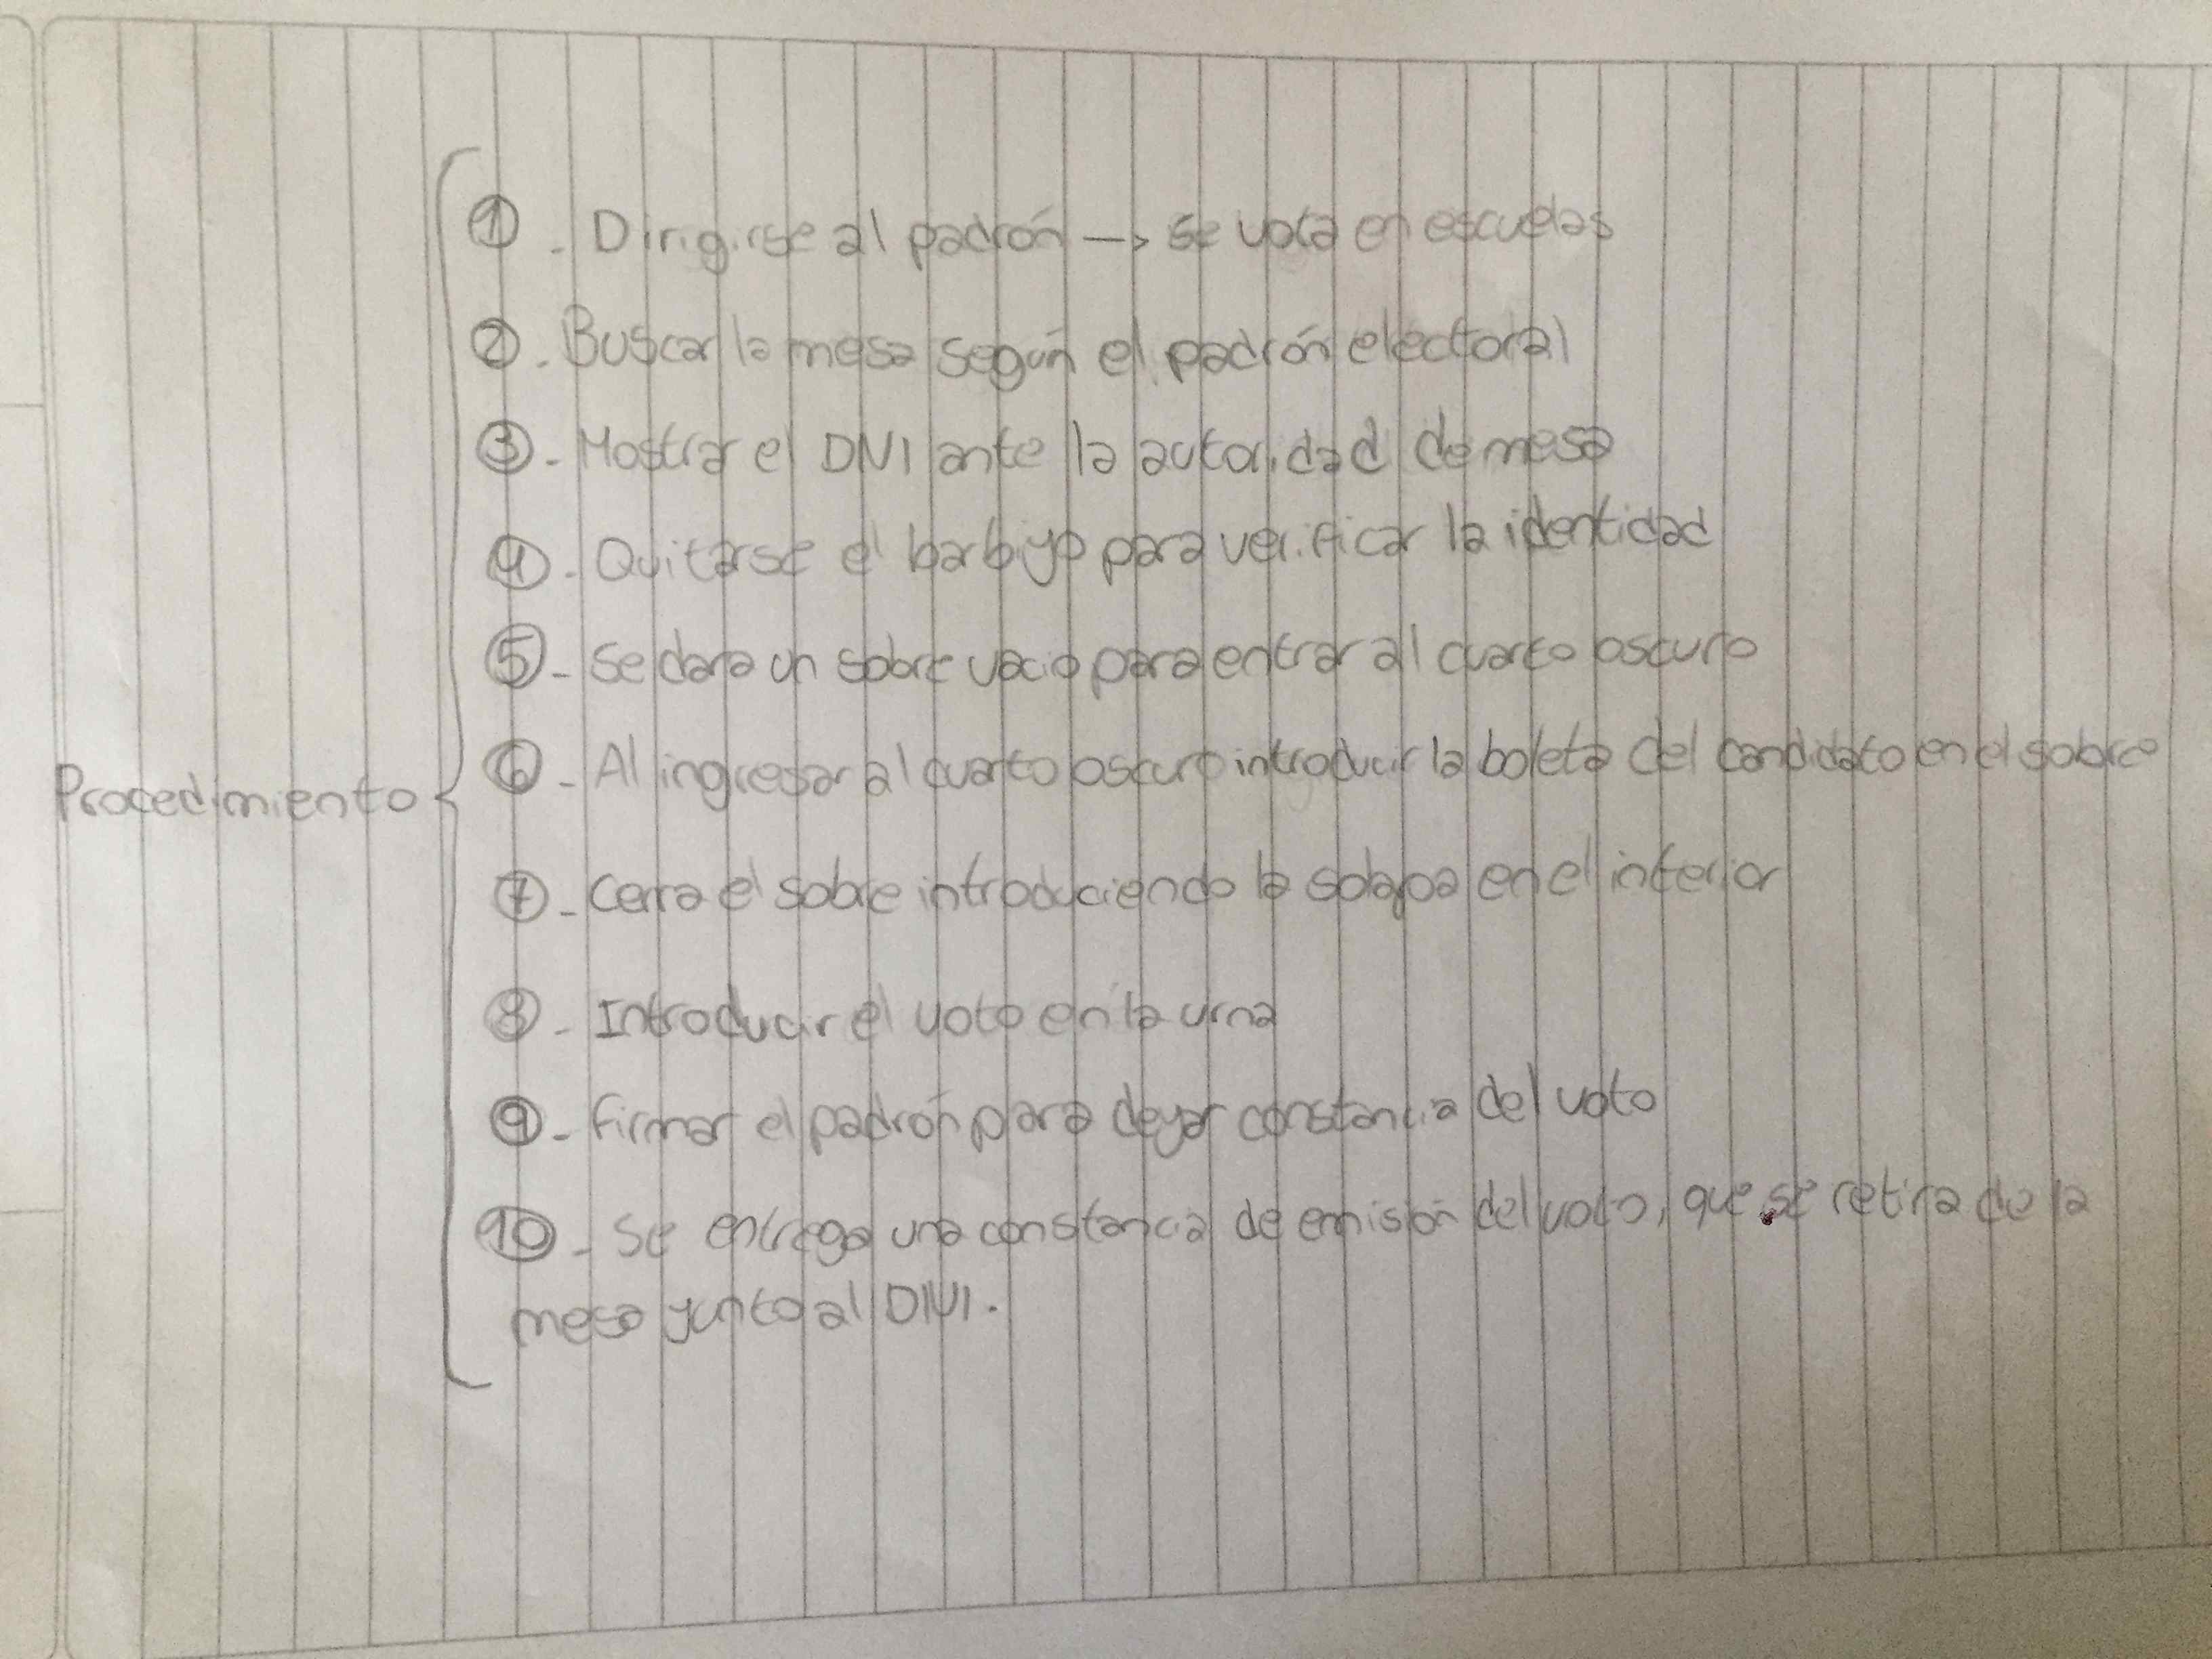 Procedimiento
① - Dirigirse al padrón → se vota en escuelas
② - Buscar la mesa según el padrón electoral
③ - Mostrar el DNI ante la autoridad de mesa
④ - Quitarse el barbijo para verificar la identidad
⑤ - Se dara un sobre vacio para entrar al cuarto oscuro
⑥ - Al ingresar al cuarto oscuro introducir la boleta del candidato en el sobre
⑦ - Cerra el sobre introduciendo la solapa en el interior
⑧ - Introducir el voto en la urna
⑨ - Firmar el padrón para dejar constancia del voto
⑩ - Se entrega una constancia de emisión del voto, que se retira de la
mesa junto al DNI.